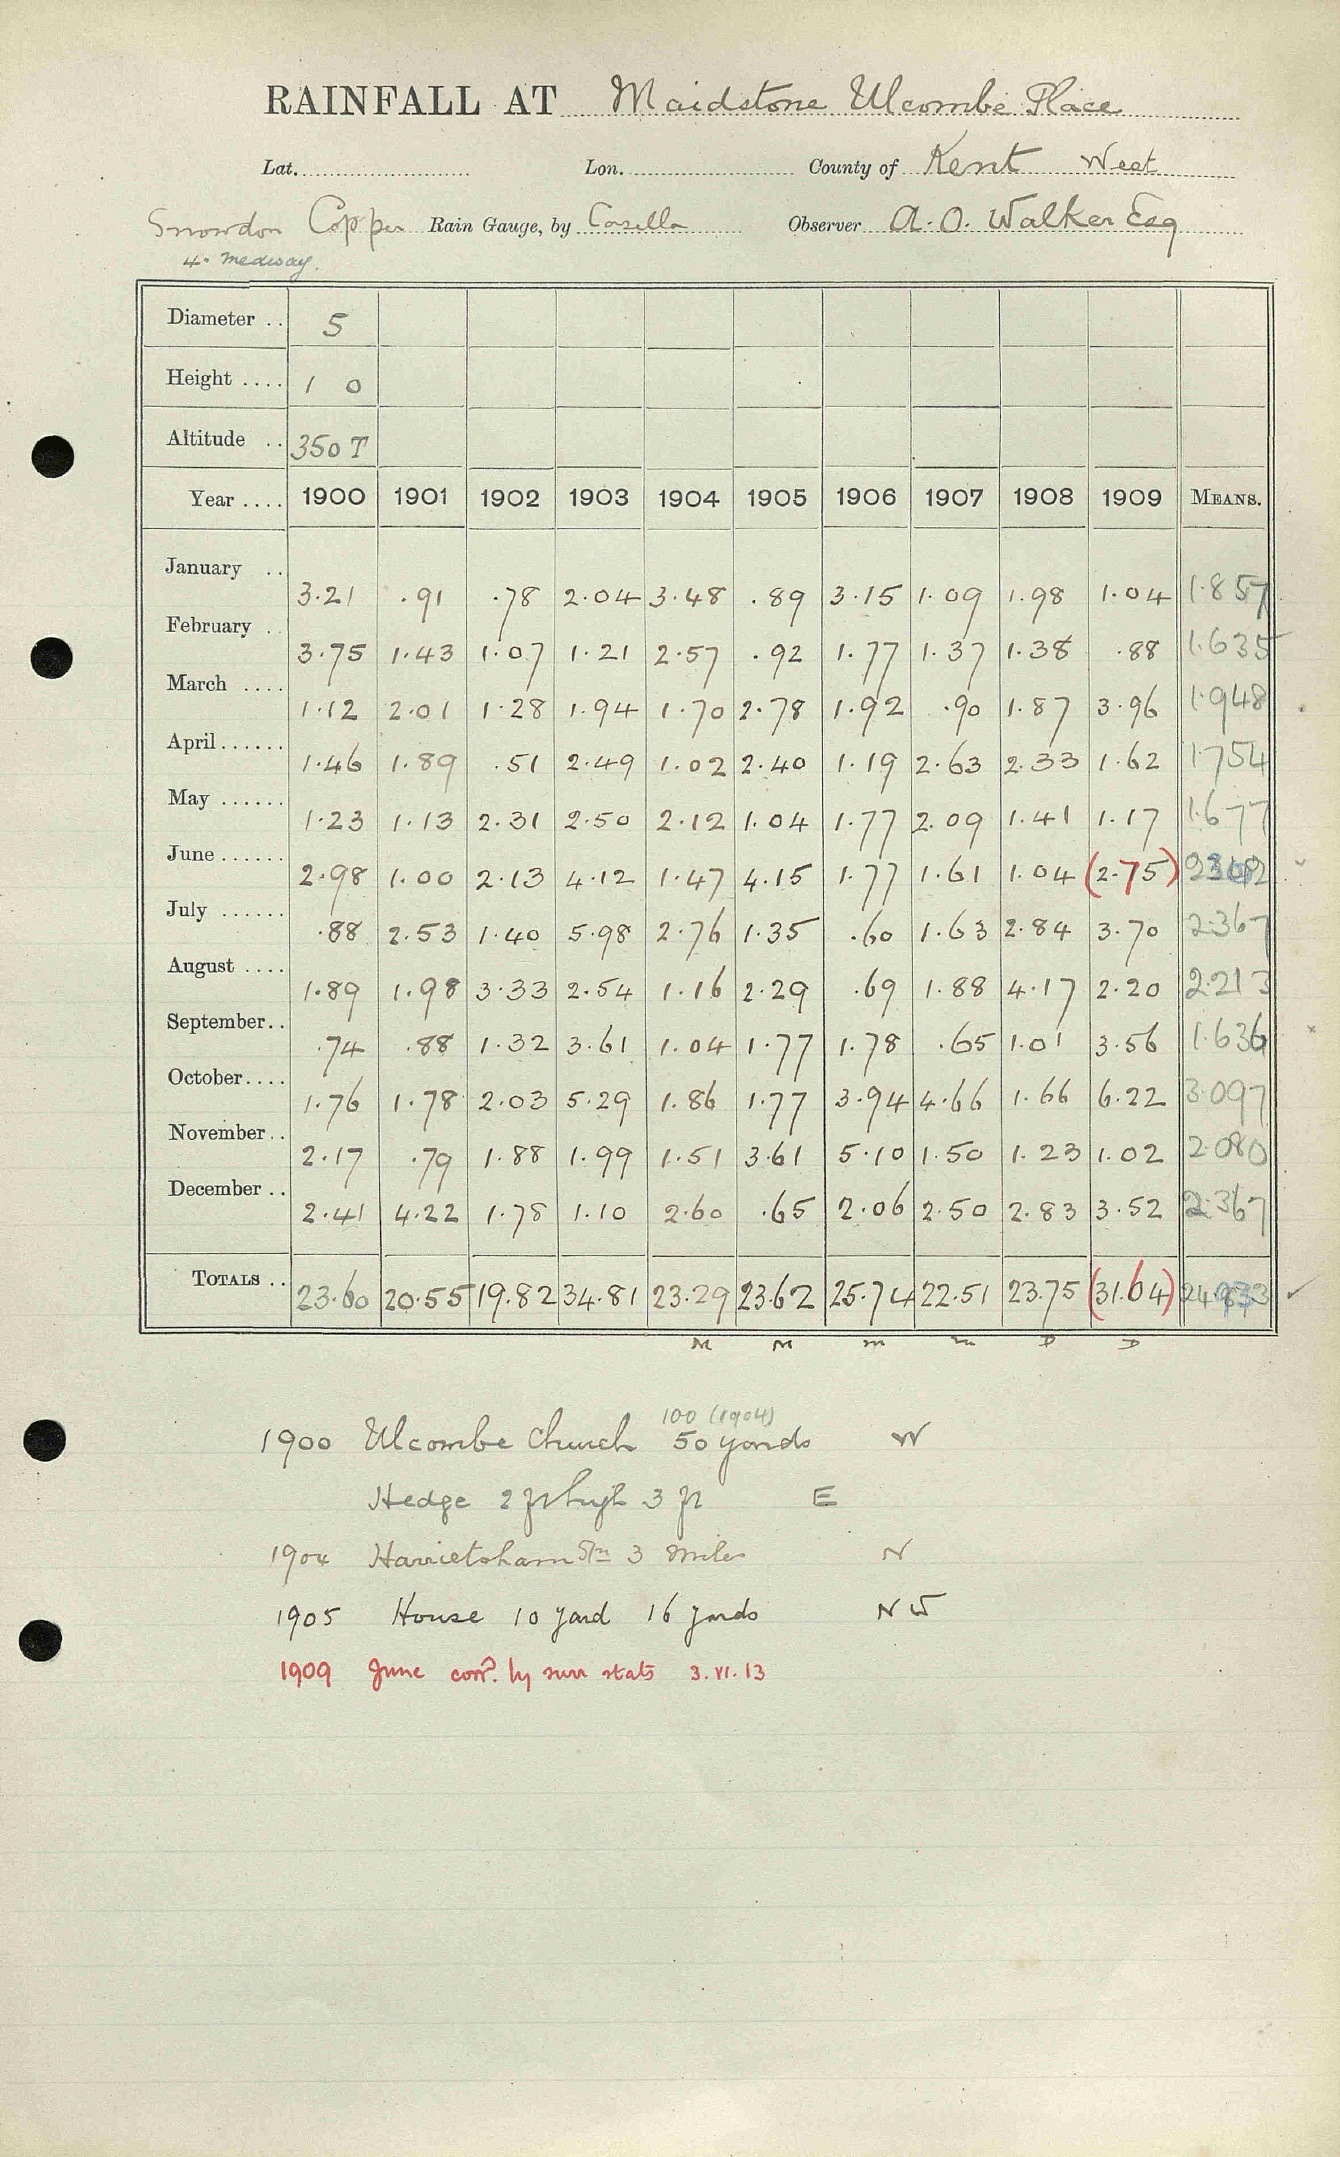 RAINFALL AT Maidstone Ulcombe Place
Lat. Lon. County of Kent West
Snowdon Copper Rain Gauge, by Casella Observer A. O. Walker Esq
4. Medway.
Diameter .. 5
Height .... 1 0
Altitude .. 350 T
Year .... 1900 1901 1902 1903 1904 1905 1906 1907 1908 1909 MEANS.
January .. 3.21 .91 .78 2.04 3.48 .89 3.15 1.09 1.98 1.04 1.857
February .. 3.75 1.43 1.07 1.21 2.57 .92 1.77 1.37 1.38 .88 1.635
March .... 1.12 2.01 1.28 1.94 1.70 2.78 1.92 .90 1.87 3.96 1.948
April ...... 1.46 1.89 .51 2.49 1.02 2.40 1.19 2.63 2.33 1.62 1.754
May ...... 1.23 1.13 2.31 2.50 2.12 1.04 1.77 2.09 1.41 1.17 1.677
June ...... 2.98 1.00 2.13 4.12 1.47 4.15 1.77 1.61 1.04 (2.75)
July ...... .88 2.53 1.40 5.98 2.76 1.35 .60 1.63 2.84 3.70 2.367
August .... 1.89 1.98 3.33 2.54 1.16 2.29 .69 1.88 4.17 2.20 2.213
September .. .74 .88 1.32 3.61 1.04 1.77 1.78 .65 1.01 3.56 1.636
October .... 1.76 1.78 2.03 5.29 1.86 1.77 3.94 4.66 1.66 6.22 3.097
November .. 2.17 .79 1.88 1.99 1.51 3.61 5.10 1.50 1.23 1.02 2.080
December .. 2.41 4.22 1.78 1.10 2.60 .65 2.06 2.50 2.83 3.52 2.367
TOTALS .. 23.60 20.55 19.82 34.81 23.29 23.62 25.74 22.51 23.75 (31.64)
M M m m D D
100 (1904)
1900 Ulcombe Church 50 yards W
Hedge 2 ft high 3 ft E
1904 Harrietsham Stn 3 miles N
1905 House 10 yard 16 yards NW
1909 June corrd. by surr stats 3.VI.13